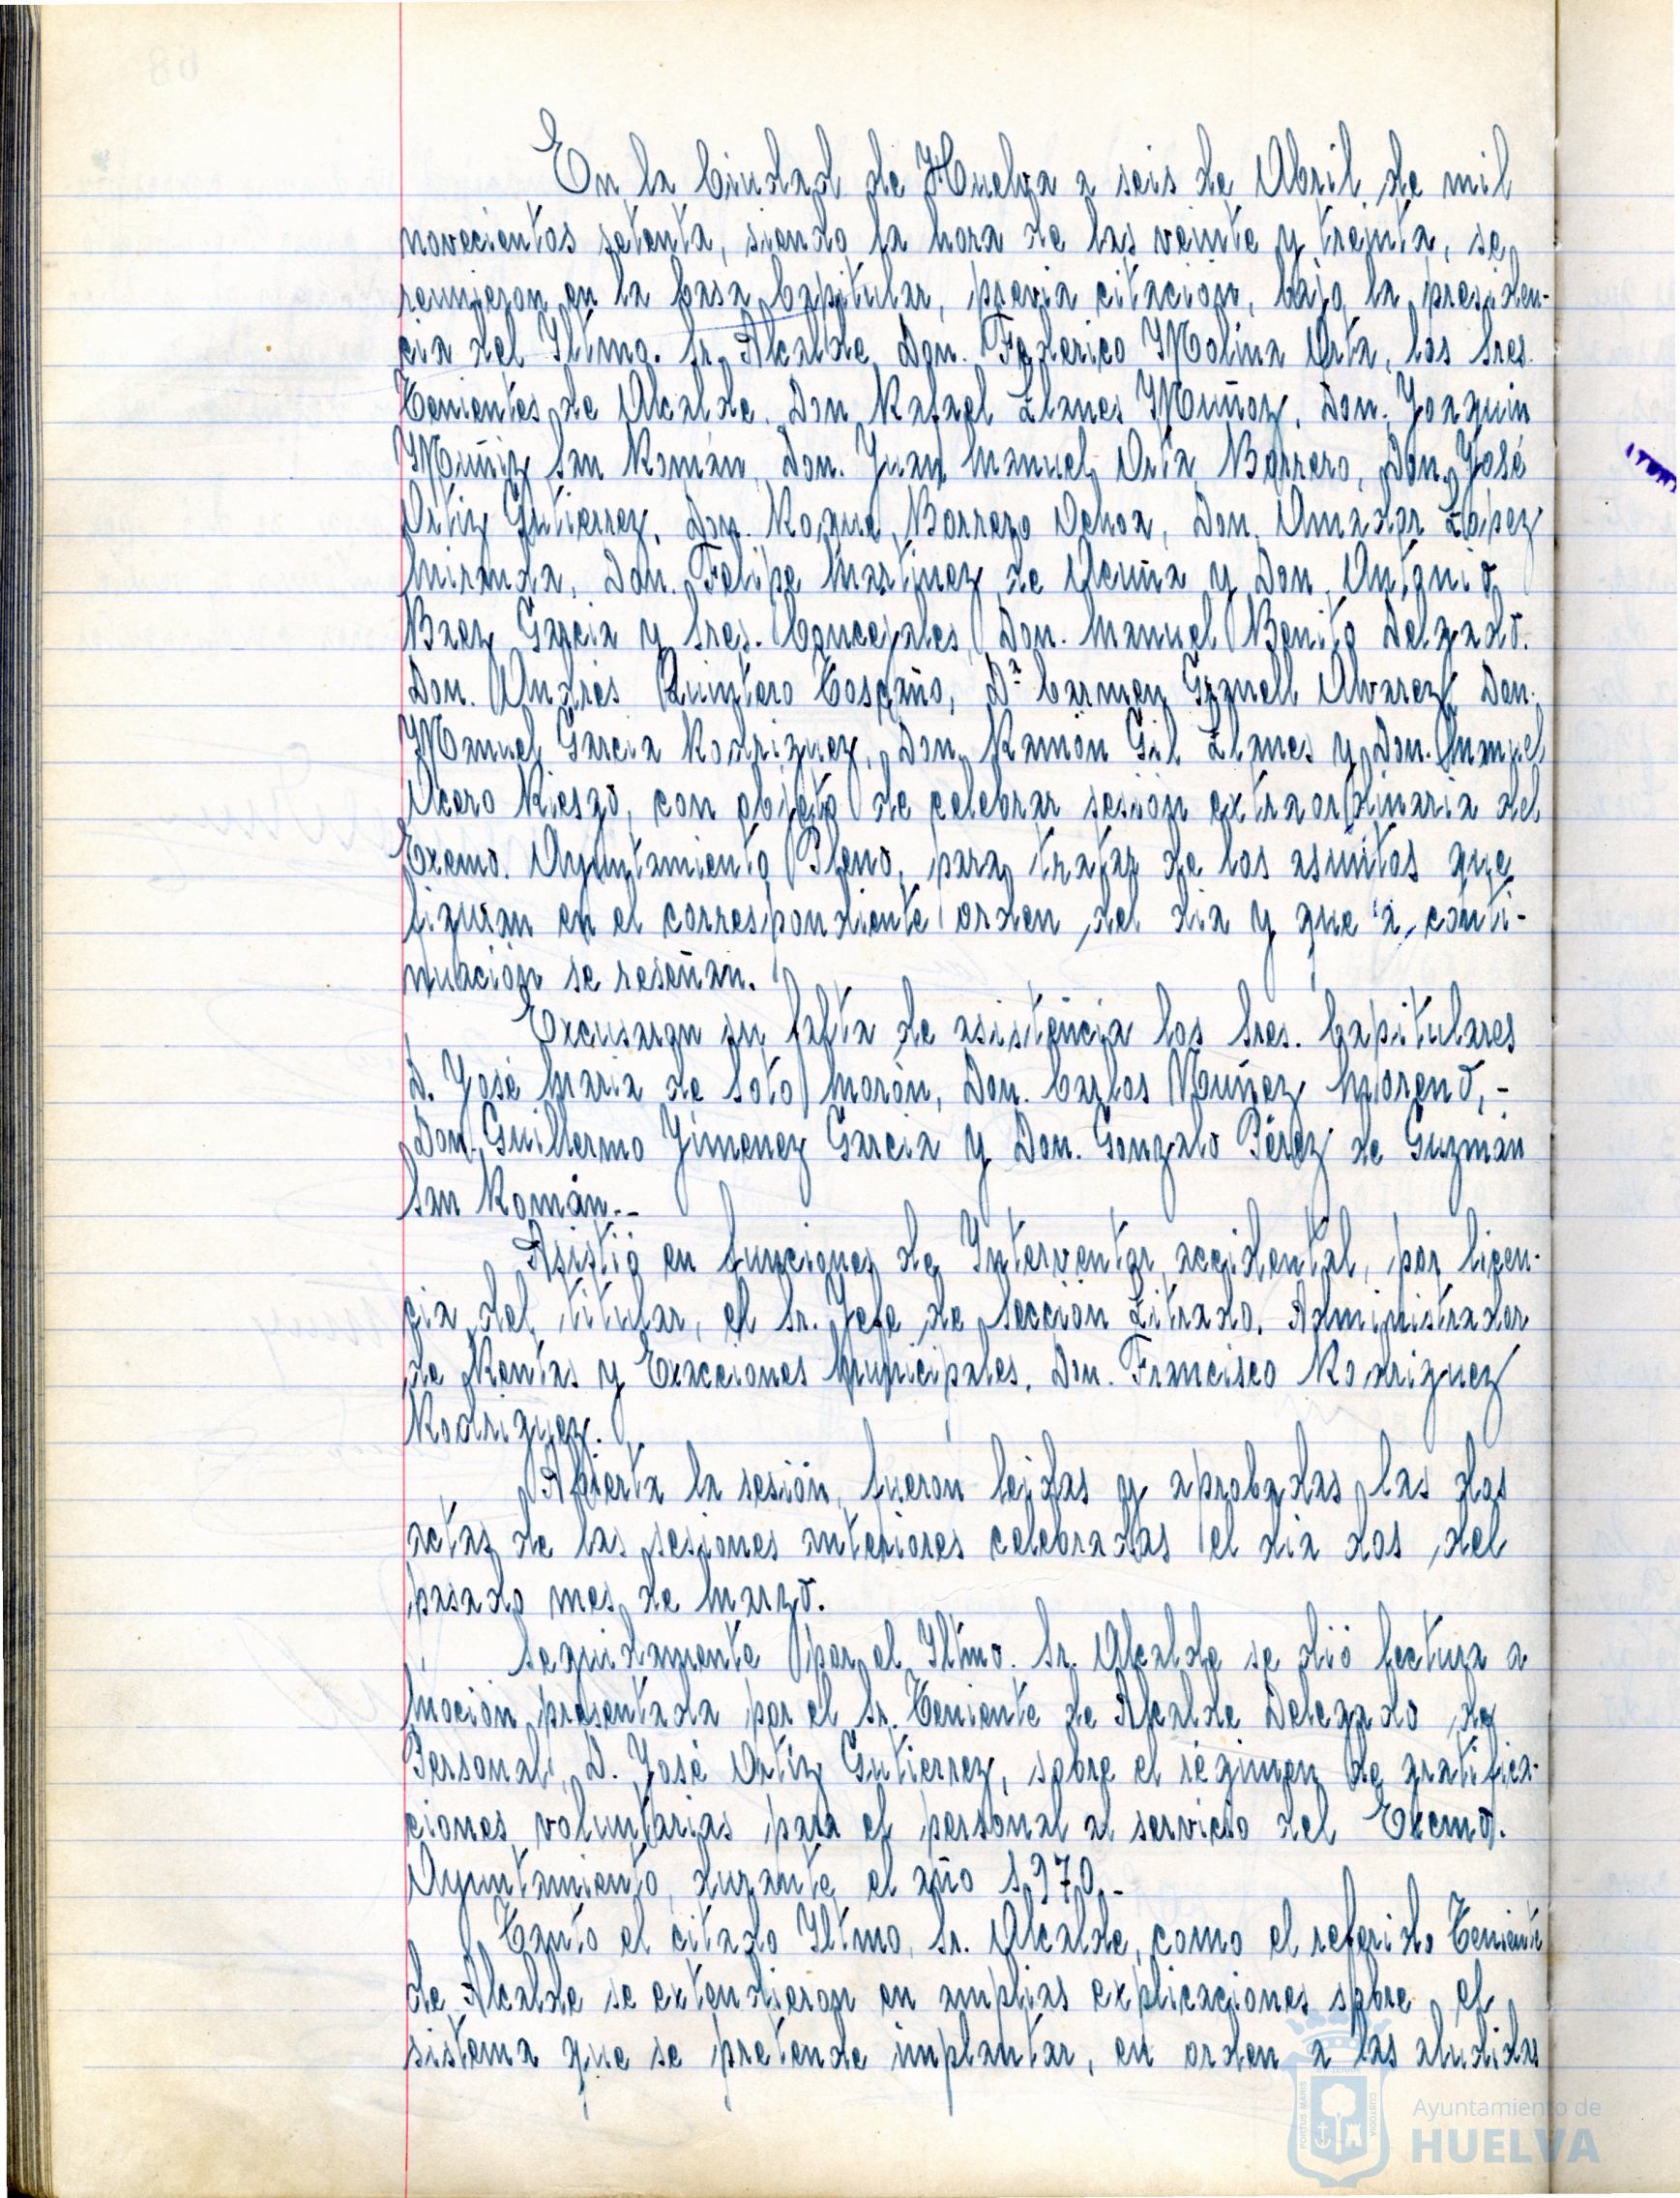 En la Ciudad de Huelva a seis de Abril de mil
novecientos setenta, siendo la hora de las veinte y treinta, se
reunieron en la Casa Capitular, previa citación, bajo la presiden-
cia del Iltmo. Sr. Alcalde Don. Federico Molina Orta, los Sres.
Tenientes de Alcalde, Don Rafael Llanes Muñoz, Don. Joaquin
Muñiz San Román, Don. Juan Manuel Orta Borrero, Don. José
Ortiz Gutierrez, Don. Roque Borrero Ochoa, Don. Amador López
Miranda, Don. Felipe Martinez de Acuña y Don. Antonio
Baez Garcia y Sres. Concejales, Don. Manuel Benito Delgado.
Don. Andrés Quintero Toscano, Dª Carmen Granell Alvarez, Don.
Manuel Garcia Rodriguez, Don. Ramón Gil Llanes y Don. Manuel
Acero Riesgo, con objeto de celebrar sesión extraordinaria del
Excmo. Ayuntamiento Pleno, para tratar de los asuntos que
figuran en el correspondiente orden del dia y que a conti-
nuación se reseñan.
Excusaron su falta de asistencia los Sres. Capitulares
D. José Maria de Soto Morón, Don. Carlos Núñez Moreno, -
Don. Guillermo Jimenez Garcia y Don. Gonzalo Pérez de Guzmán
San Román.-
Asistió en funciones de Interventor accidental, por licen-
cia del titular, el Sr. Jefe de Sección Letrado, Administrador
de Rentas y Exacciones Municipales, Don. Francisco Rodriguez
Rodriguez.
Abierta la sesión, fueron leidas y aprobadas las dos
actas de las sesiones anteriores celebradas el dia dos del
pasado mes de Marzo.
Seguidamente por el Iltmo. Sr. Alcalde se dió lectura a
Moción presentada por el Sr. Teniente de Alcalde Delegado de
Personal, D. José Ortiz Gutierrez, sobre el régimen de gratifica-
ciones voluntarias para el personal al servicio del Excmo.
Ayuntamiento, durante el año 1.970.-
Tanto el citado Iltmo. Sr. Alcalde, como el referido Teniente
de Alcalde se extendieron en amplias explicaciones sobre el
sistema que se pretende implantar, en orden a las aludidas
PORTUS MARIS CUSTODIA
Ayuntamiento de
HUELVA